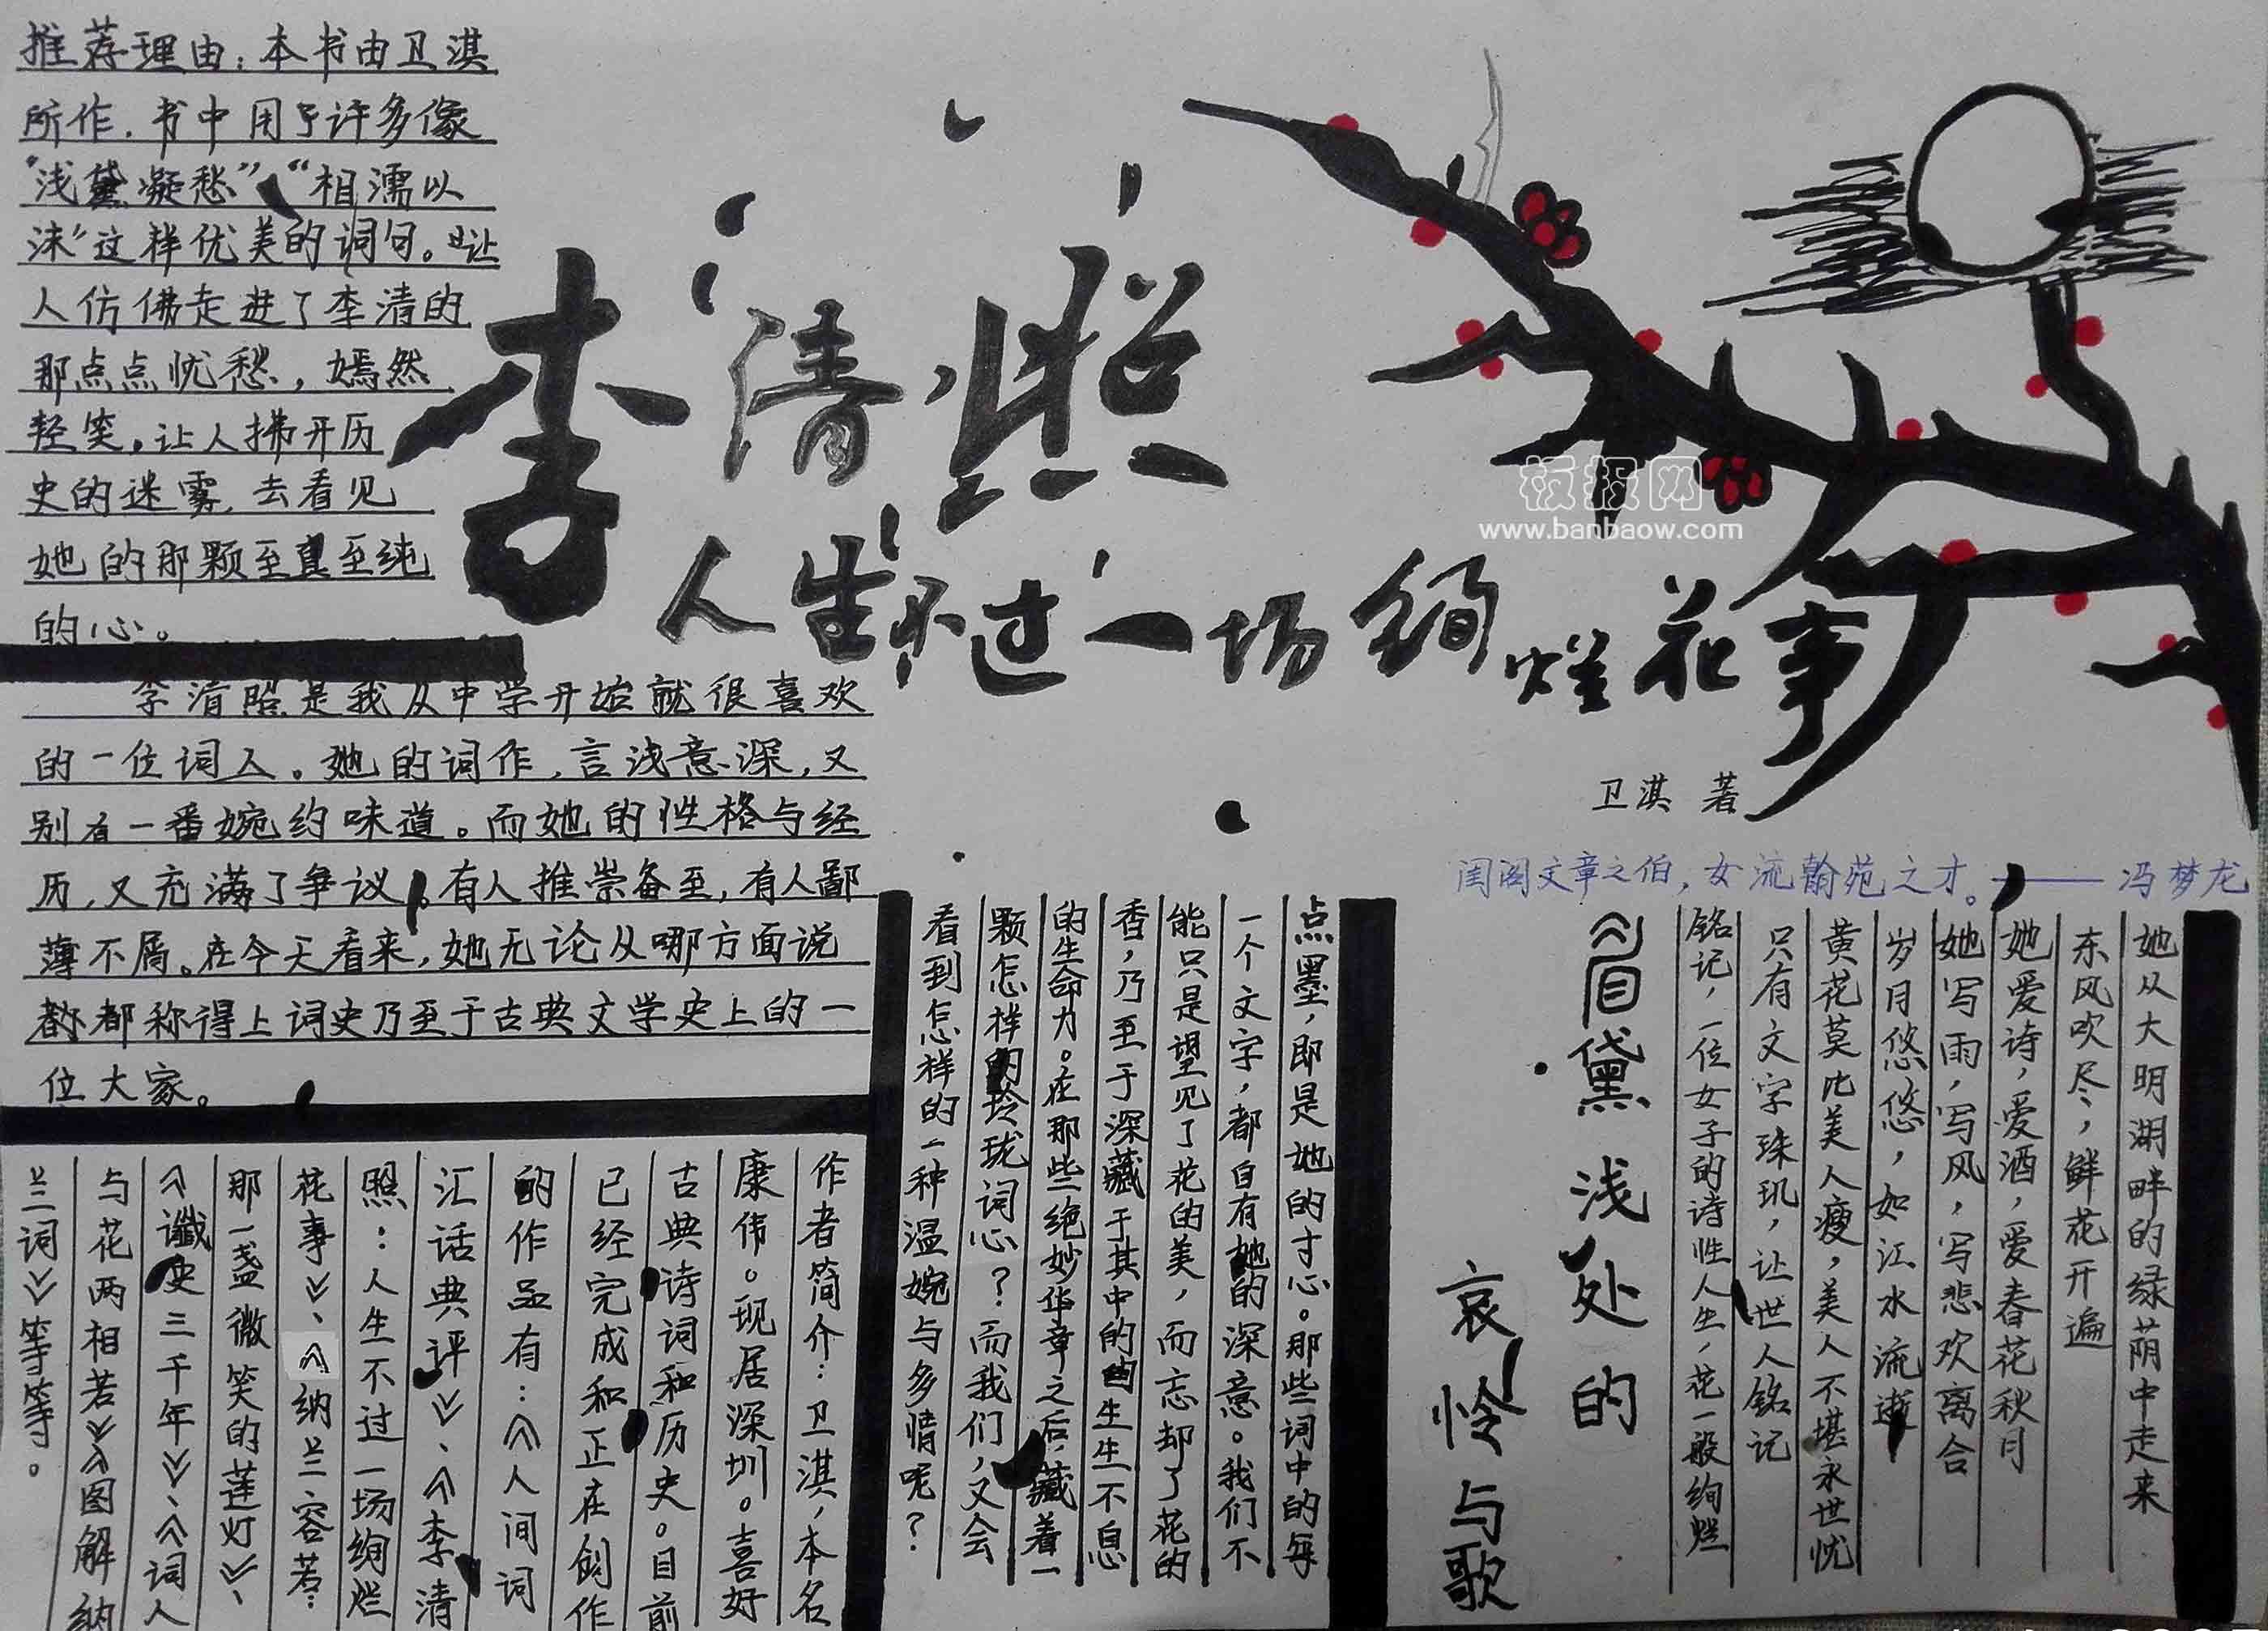 推荐理由：本书由卫淇
所作，书中用了许多像
“浅黛凝愁”、“相濡以
沫”这样优美的词句。让
人仿佛走进了李清的
那点点忧愁，嫣然
轻笑。让人拂开历
史的迷雾，去看见
她的那颗至真至纯
的心。
李清照
人生不过一场绚烂花事
卫淇 著
板报网
www.banbaow.com
李清照是我从中学开始就很喜欢
的一位词人。她的词作，言浅意深，又
别有一番婉约味道。而她的性格与经
历，又充满了争议。有人推崇备至，有人鄙
薄不屑。在今天看来，她无论从哪方面说
都称得上词史乃至于古典文学史上的一
位大家。
闺阁文章之伯，女流翰苑之才。——冯梦龙
她从大明湖畔的绿荫中走来
东风吹尽，鲜花开遍
她爱诗，爱酒，爱春花秋月
她写雨，写风，写悲欢离合
岁月悠悠，如江水流逝
黄花莫比美人瘦，美人不堪永世忧
只有文字珠玑，让世人铭记
铭记，一位女子的诗性人生，花一般绚烂
眉黛浅处的
哀怜与歌
点墨，即是她的才心。那些词中的每
一个文字，都自有她的深意。我们不
能只是望见了花的美，而忘却了花的
香，乃至于深藏于其中的生生不息
的生命力。在那些绝妙华章之后，藏着一
颗怎样的玲珑词心？而我们，又会
看到怎样的一种温婉与多情呢？
作者简介：卫淇，本名
康伟。现居深圳。喜好
古典诗词和历史。目前
已经完成和正在创作
的作品有：《人间词
汇话典评》、《李清
照：人生不过一场绚烂
花事》、《纳兰容若：
那一盏微笑的莲灯》、
《谶史三千年》、《词人
与花两相若》《图解纳
兰词》等等等。